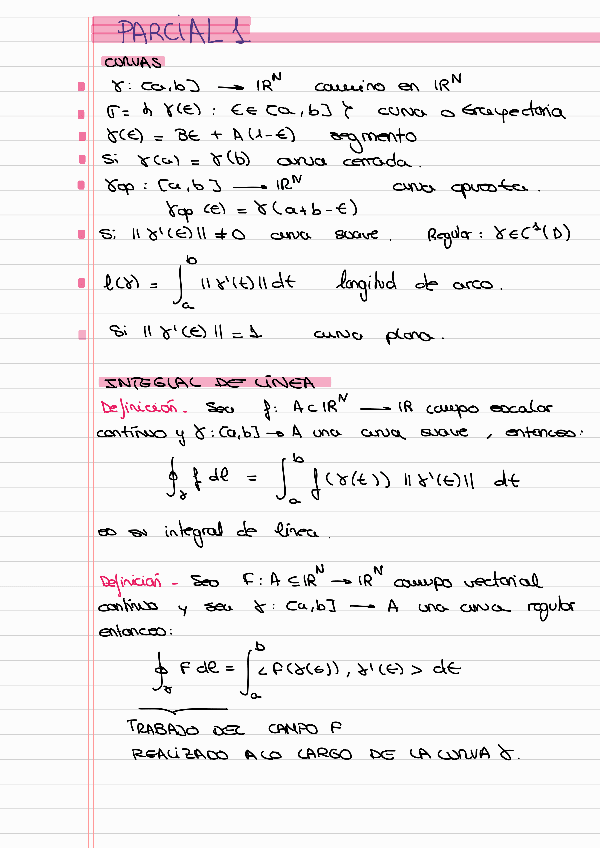 PARCIAL 1
CURVAS
γ: [a,b] → ℝᴺ camino en ℝᴺ
Γ = { γ(t) : t ∈ [a,b] } curva o trayectoria
γ(t) = Bt + A(1-t) segmento
Si γ(a) = γ(b) curva cerrada.
γop : [a,b] → ℝᴺ curva opuesta.
γop (t) = γ(a+b-t)
Si ||γ'(t)|| ≠ 0 curva suave. Regular: γ ∈ C¹(D)
l(γ) = ∫ₐᵇ ||γ'(t)|| dt longitud de arco.
Si ||γ'(t)|| = 1 curva plana.
INTEGRAL DE LÍNEA
Definición. Sea f: A ⊂ ℝᴺ → ℝ campo escalar
contínuo y γ: [a,b] → A una curva suave, entonces:
∮_γ f dl = ∫ₐᵇ f(γ(t)) ||γ'(t)|| dt
es su integral de línea.
Definición - Sea F: A ⊆ ℝᴺ → ℝᴺ campo vectorial
contínuo y sea γ: [a,b] → A una curva regular
entonces:
∮_γ F dl = ∫ₐᵇ < F(γ(t)), γ'(t) > dt
TRABAJO DEL CAMPO F
REALIZADO A LO LARGO DE LA CURVA γ.